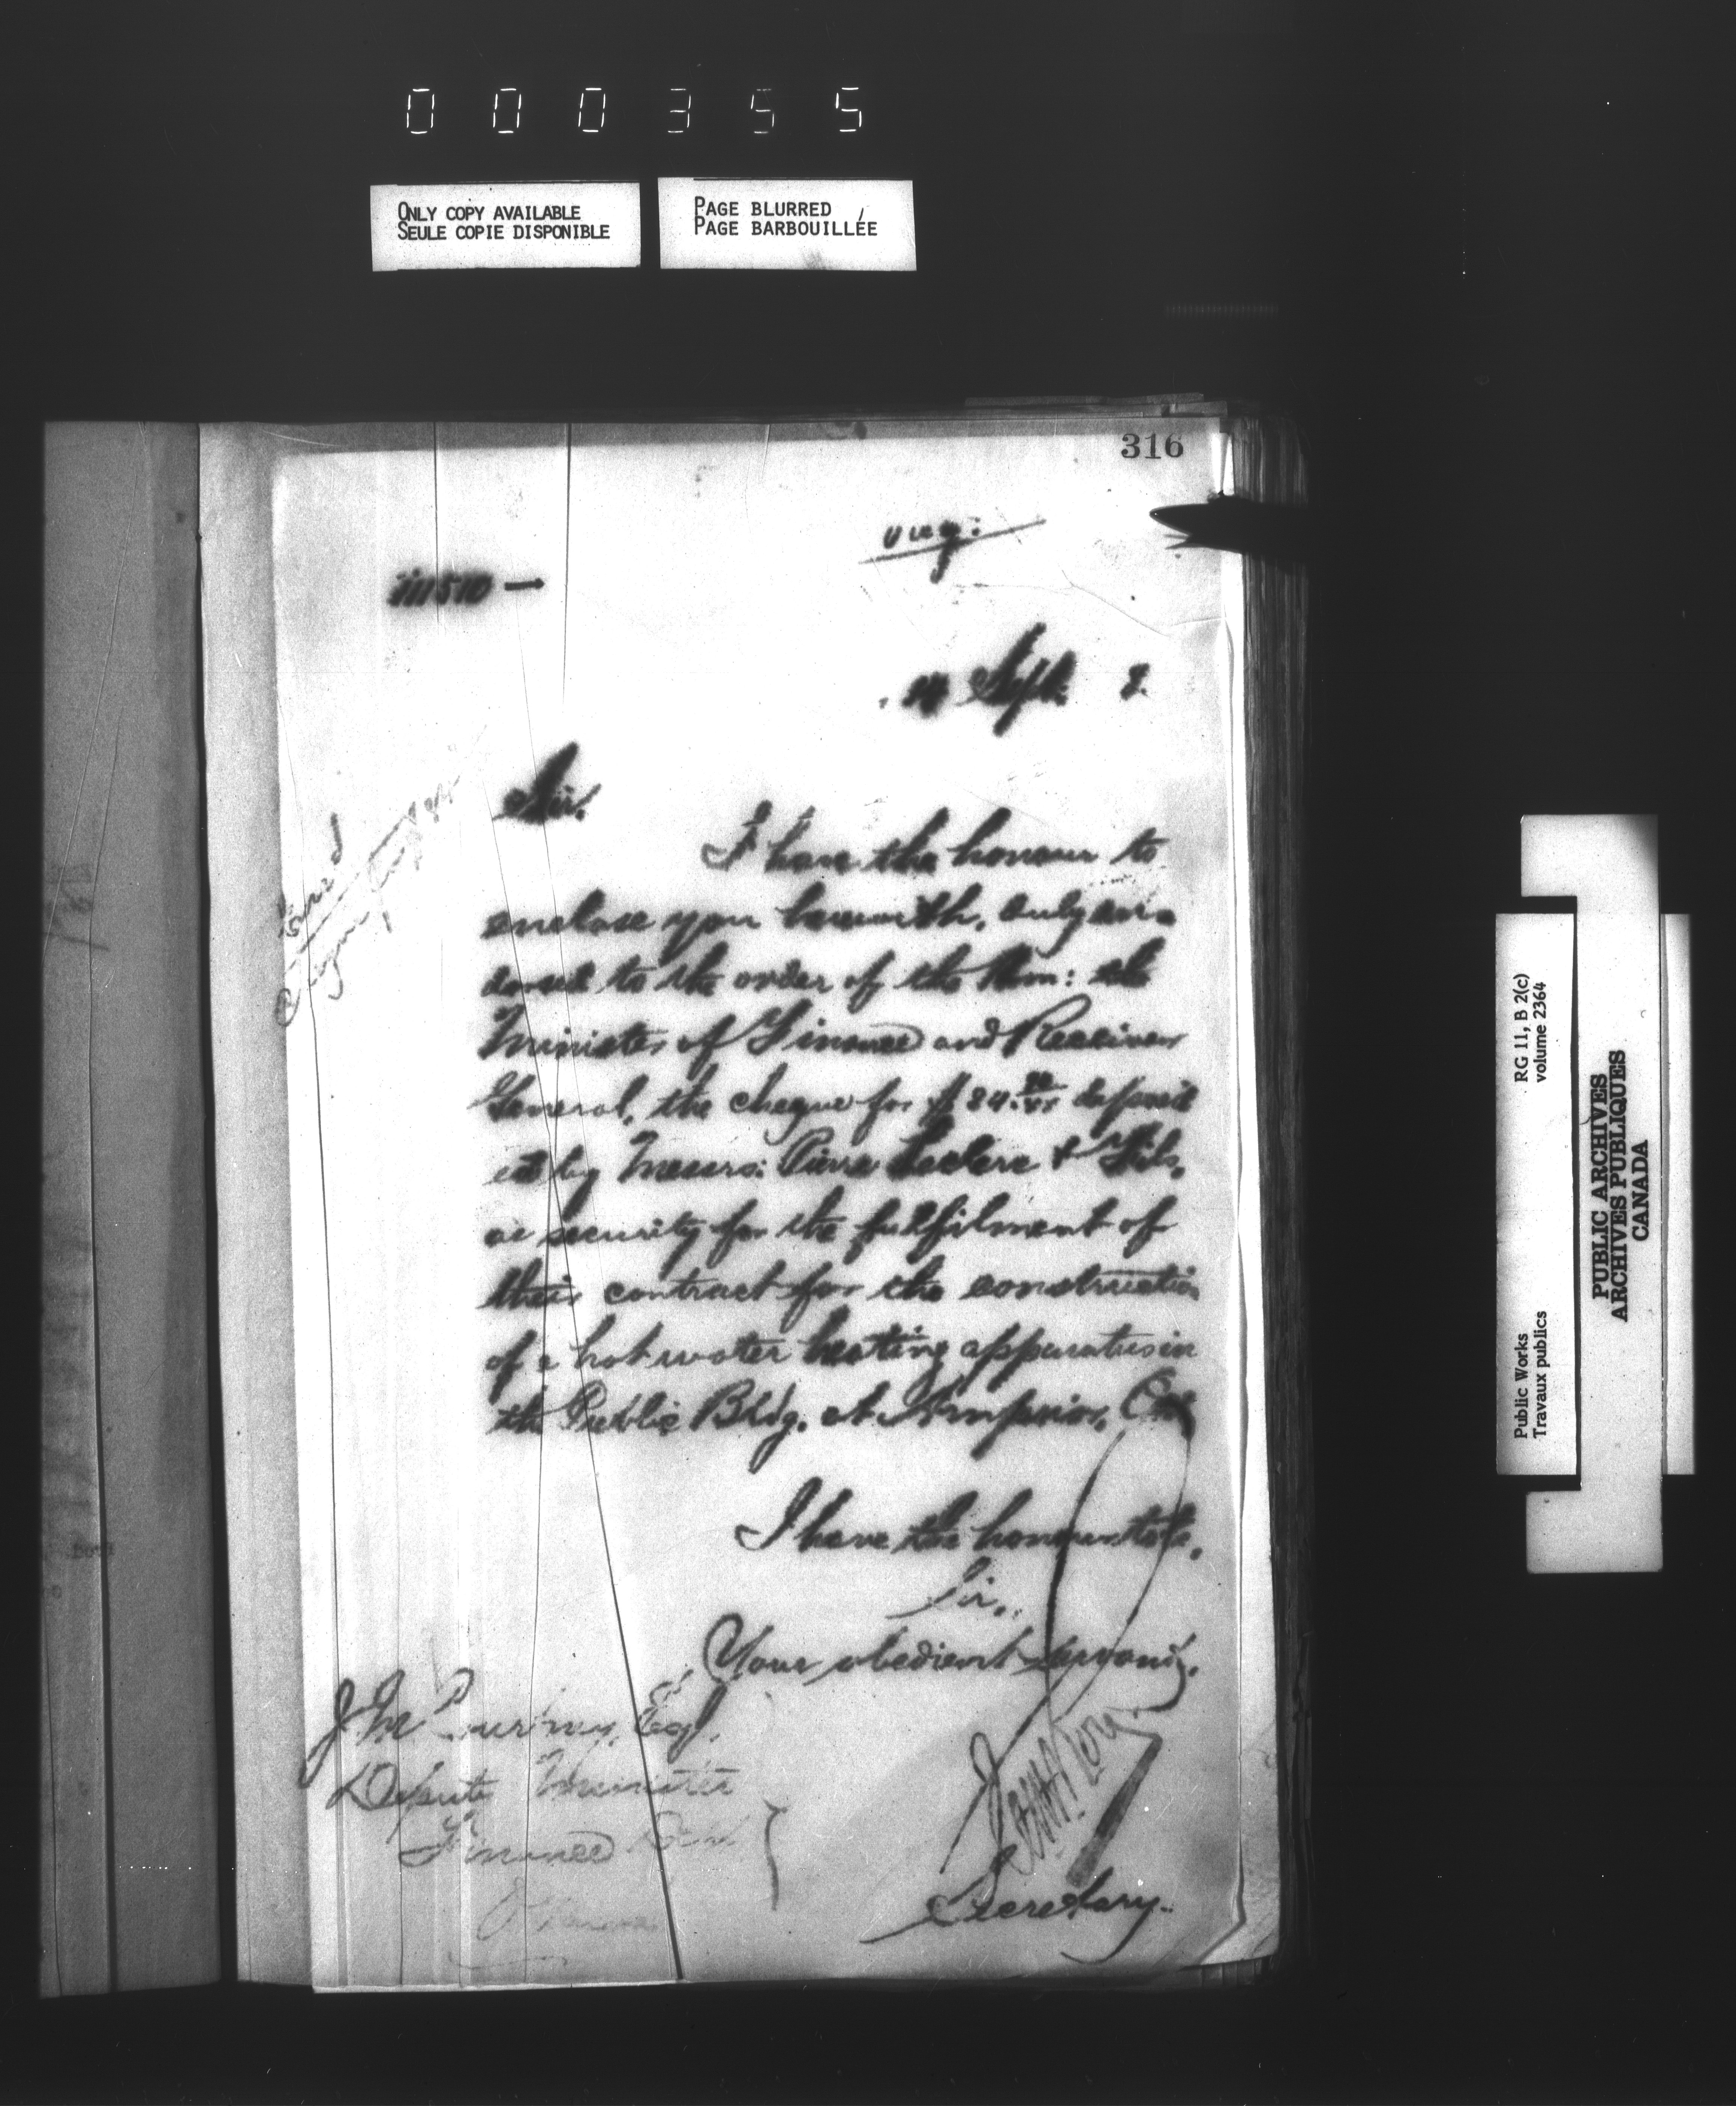 000355
ONLY COPY AVAILABLE
SEULE COPIE DISPONIBLE
PAGE BLURRED
PAGE BARBOUILLÉE
316
Sept.
Sir,
I have the honour to
enclose you herewith, duly en-
dorsed to the order of the Hon: the
Minister of Finance and Receiver
General, the cheque for $ deposit
ed by Messrs: Pierre Leclerc & Fils,
as security for the fulfilment of
their contract for the construction
of a hot water heating apparatus in
the Public Bldg. at Arnprior, Ont
I have the honour to be,
Sir,
Your obedient servant,
J. M. Courtney, Esq.
Deputy Minister
Finance
Ottawa
Secretary.
RG 11, B 2(c)
volume 2364
Public Works
Travaux publics
PUBLIC ARCHIVES
ARCHIVES PUBLIQUES
CANADA